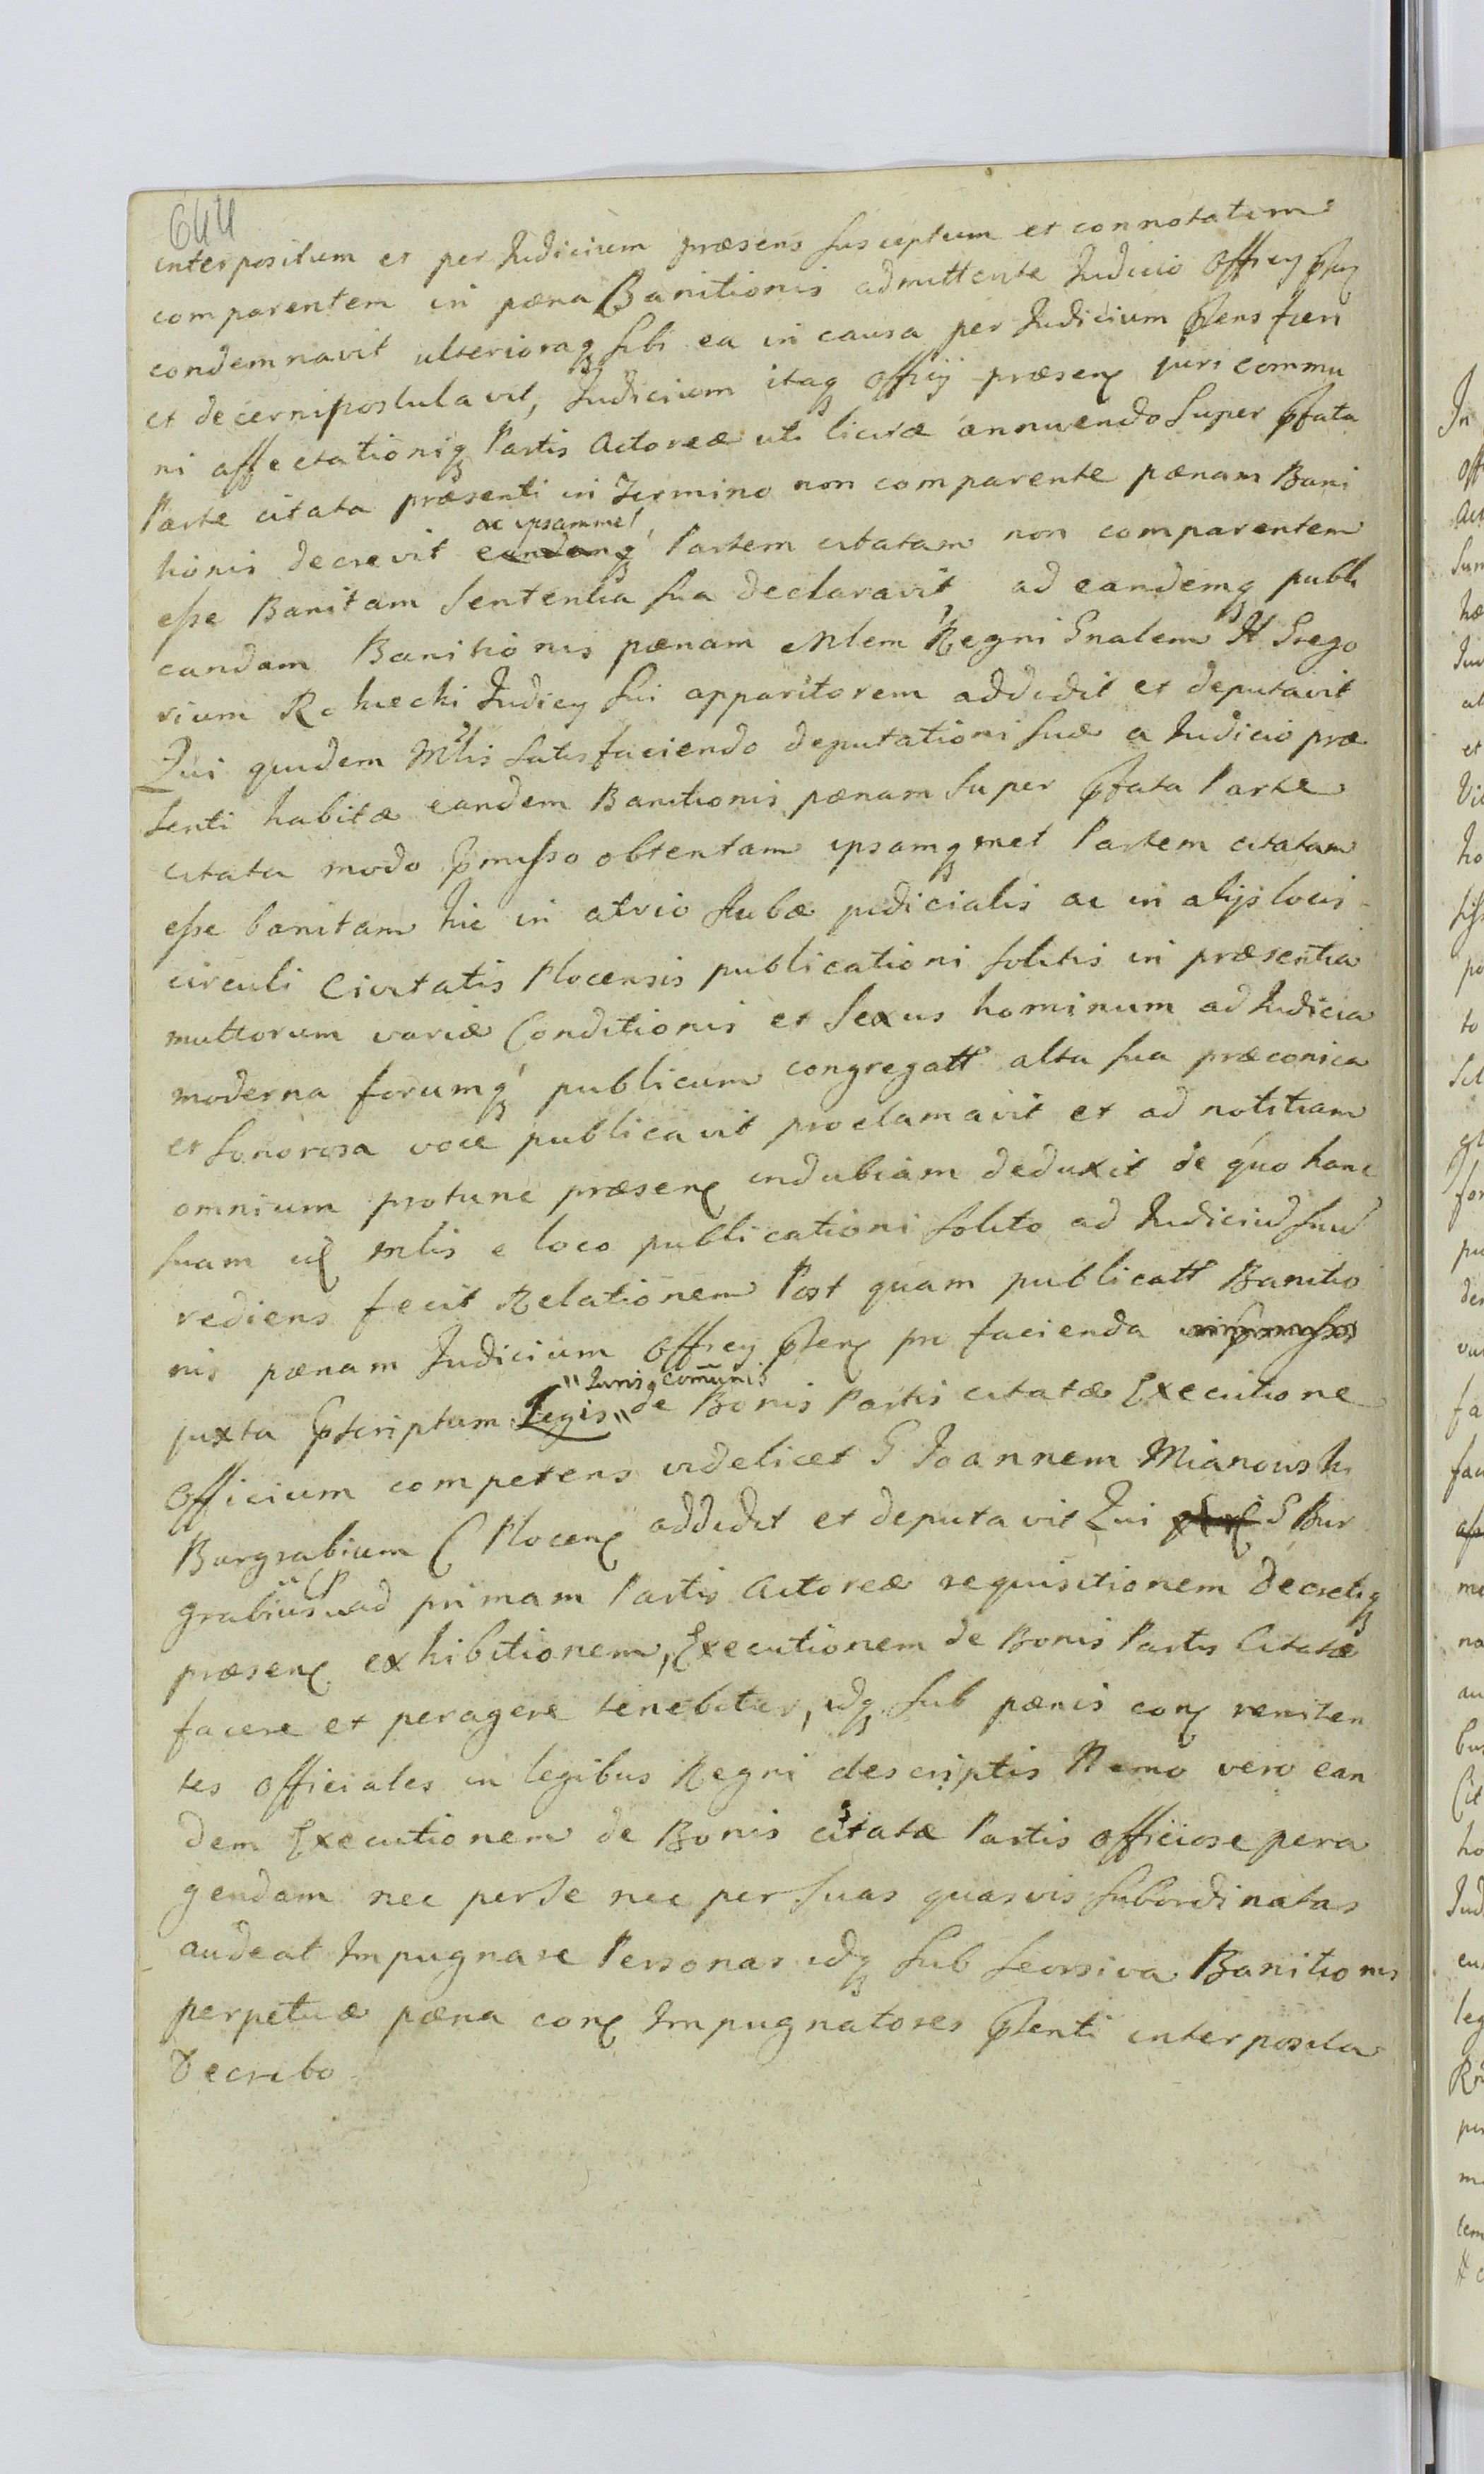 644
interpositum et per Judicium præsens susceptum et connotatum
comparentem in pæna Banitionis admittente Judicio Officy
condemnavit ulterioraq sibi ea in causa per Judicium pſens fieri
et decerni postulavit, Judicium itaq officij præsenꝭ juri commu
ni affectationiq Partis Actoreæ uti licitæ annuendo super pfata
Parte citata præsenti in Termino non comparente pænam Bani
ac ipsammet
tionis decrevit eandemq Partem citatam non comparentem
eſse Banitam Sententia sua declaravit, ad eandemq publi
candam Banitionis pænam Mlem Regni Gnalem H Grego
rium Judicy sui apparitorem addidit et deputavit
Qui quidem Mlis satisfaciendo deputationi suæ a Judicio præ
senti habitæ eandem Banitionis pænam super pfata Parte
citata modo pmiſso obtentam ipsamqmet Partem citatam
eſse banitam hic in atrio stubæ judicialis ac in alijs locis
circuli Civitatis Plocensis publicationi solitis in præsentia
multorum variæ Conditionis et Sexus hominum ad Judicia
moderna forumq publicum congregatt alta sua præconica
et sonorosa voce publicavit proclamavit et ad notitiam
omnium protunc præsenꝭ indubiam deduxit de quo hanc
suam mlis e loco publicationi solito ad Judiciū suū
rediens fecit Relationem Post quam publicatt Banitio
nis pænam Judicium Officy pſenꝭ pro facienda
"Jurisq comūnis
juxta pscriptum Legis" de Bonis Partis citatæ Executione
Officium competens videlicet G Joannem Mianowski
Burgrabium C Plocenꝭ addidit et deputavit Qui G Bur
grabius ad primam Partis Actoreæ requisitionem Decretiq
præsenꝭ exhibitionem, Executionem de Bonis Partis Citatæ
facere et peragere tenebitur, idq sub pænis conꝭ reniten
tes Officiales in legibus Regni descriptis Nemo vero ean
dem Executionem de Bonis citatæ Partis officiose pera
gendam nec per se nec per suas quasvis subordinatas
audeat Impugnare Personas idq sub seorsiva Banitionis
perpetuæ pæna conꝭ Impugnatores pſenti interposita
Decreto